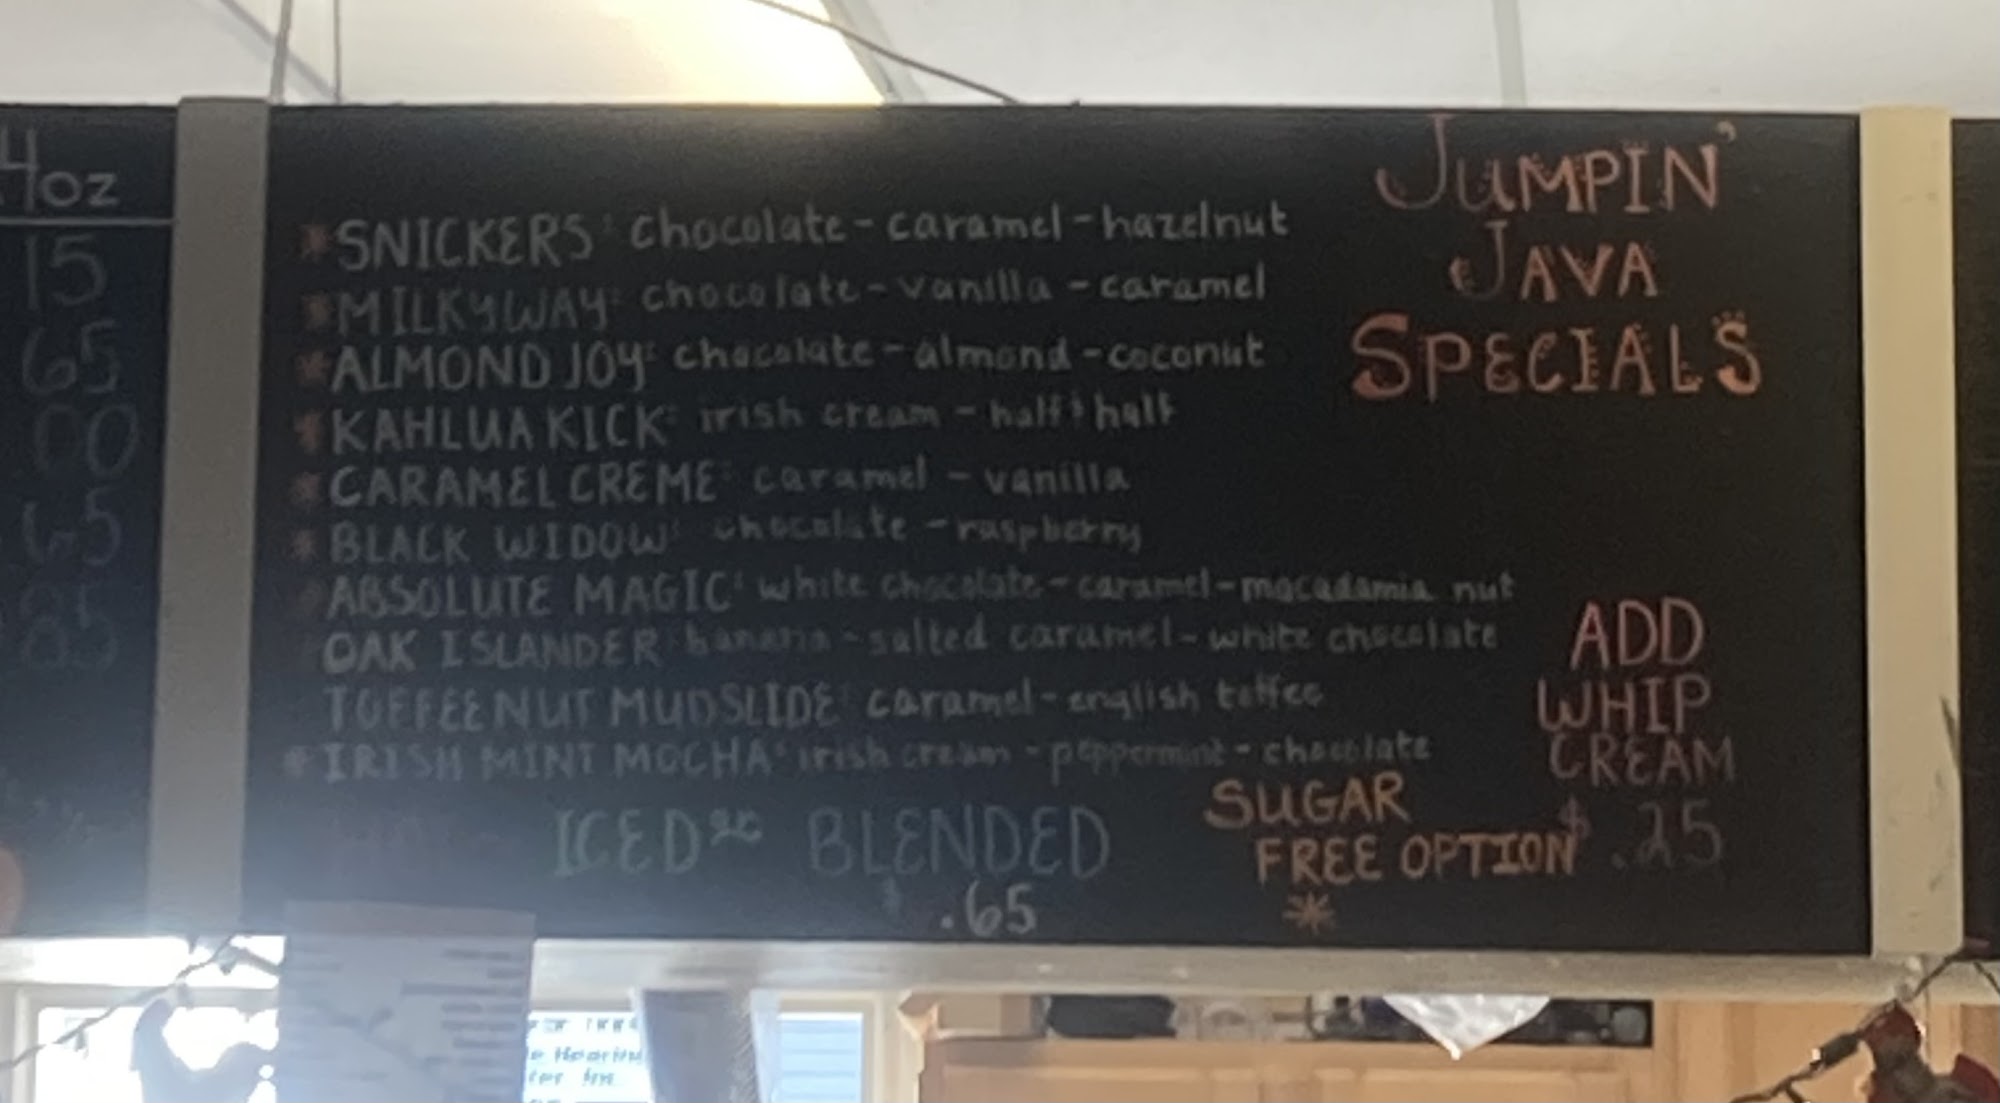 4oz
15
65
00
65
85
JUMPIN'
JAVA
SPECIALS
* SNICKERS: chocolate - caramel - hazelnut
* MILKYWAY: chocolate - vanilla - caramel
* ALMOND JOY: chocolate - almond - coconut
* KAHLUA KICK: irish cream - half & half
* CARAMEL CREME: caramel - vanilla
* BLACK WIDOW: chocolate - raspberry
* ABSOLUTE MAGIC: white chocolate - caramel - macadamia nut
OAK ISLANDER: banana - salted caramel - white chocolate
TOFFEENUT MUDSLIDE: caramel - english toffee
* IRISH MINT MOCHA: irish cream - peppermint - chocolate
ICED or BLENDED
$ .65
SUGAR
FREE OPTION
*
ADD
WHIP
CREAM
$ .25